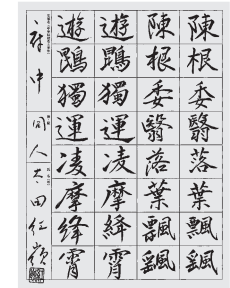 陳根委翳落葉飄颻
陳根委翳落葉飄颻
遊鵾獨運凌摩絳霄
遊鵾獨運凌摩絳霄
府中 同人 太田紅嶺